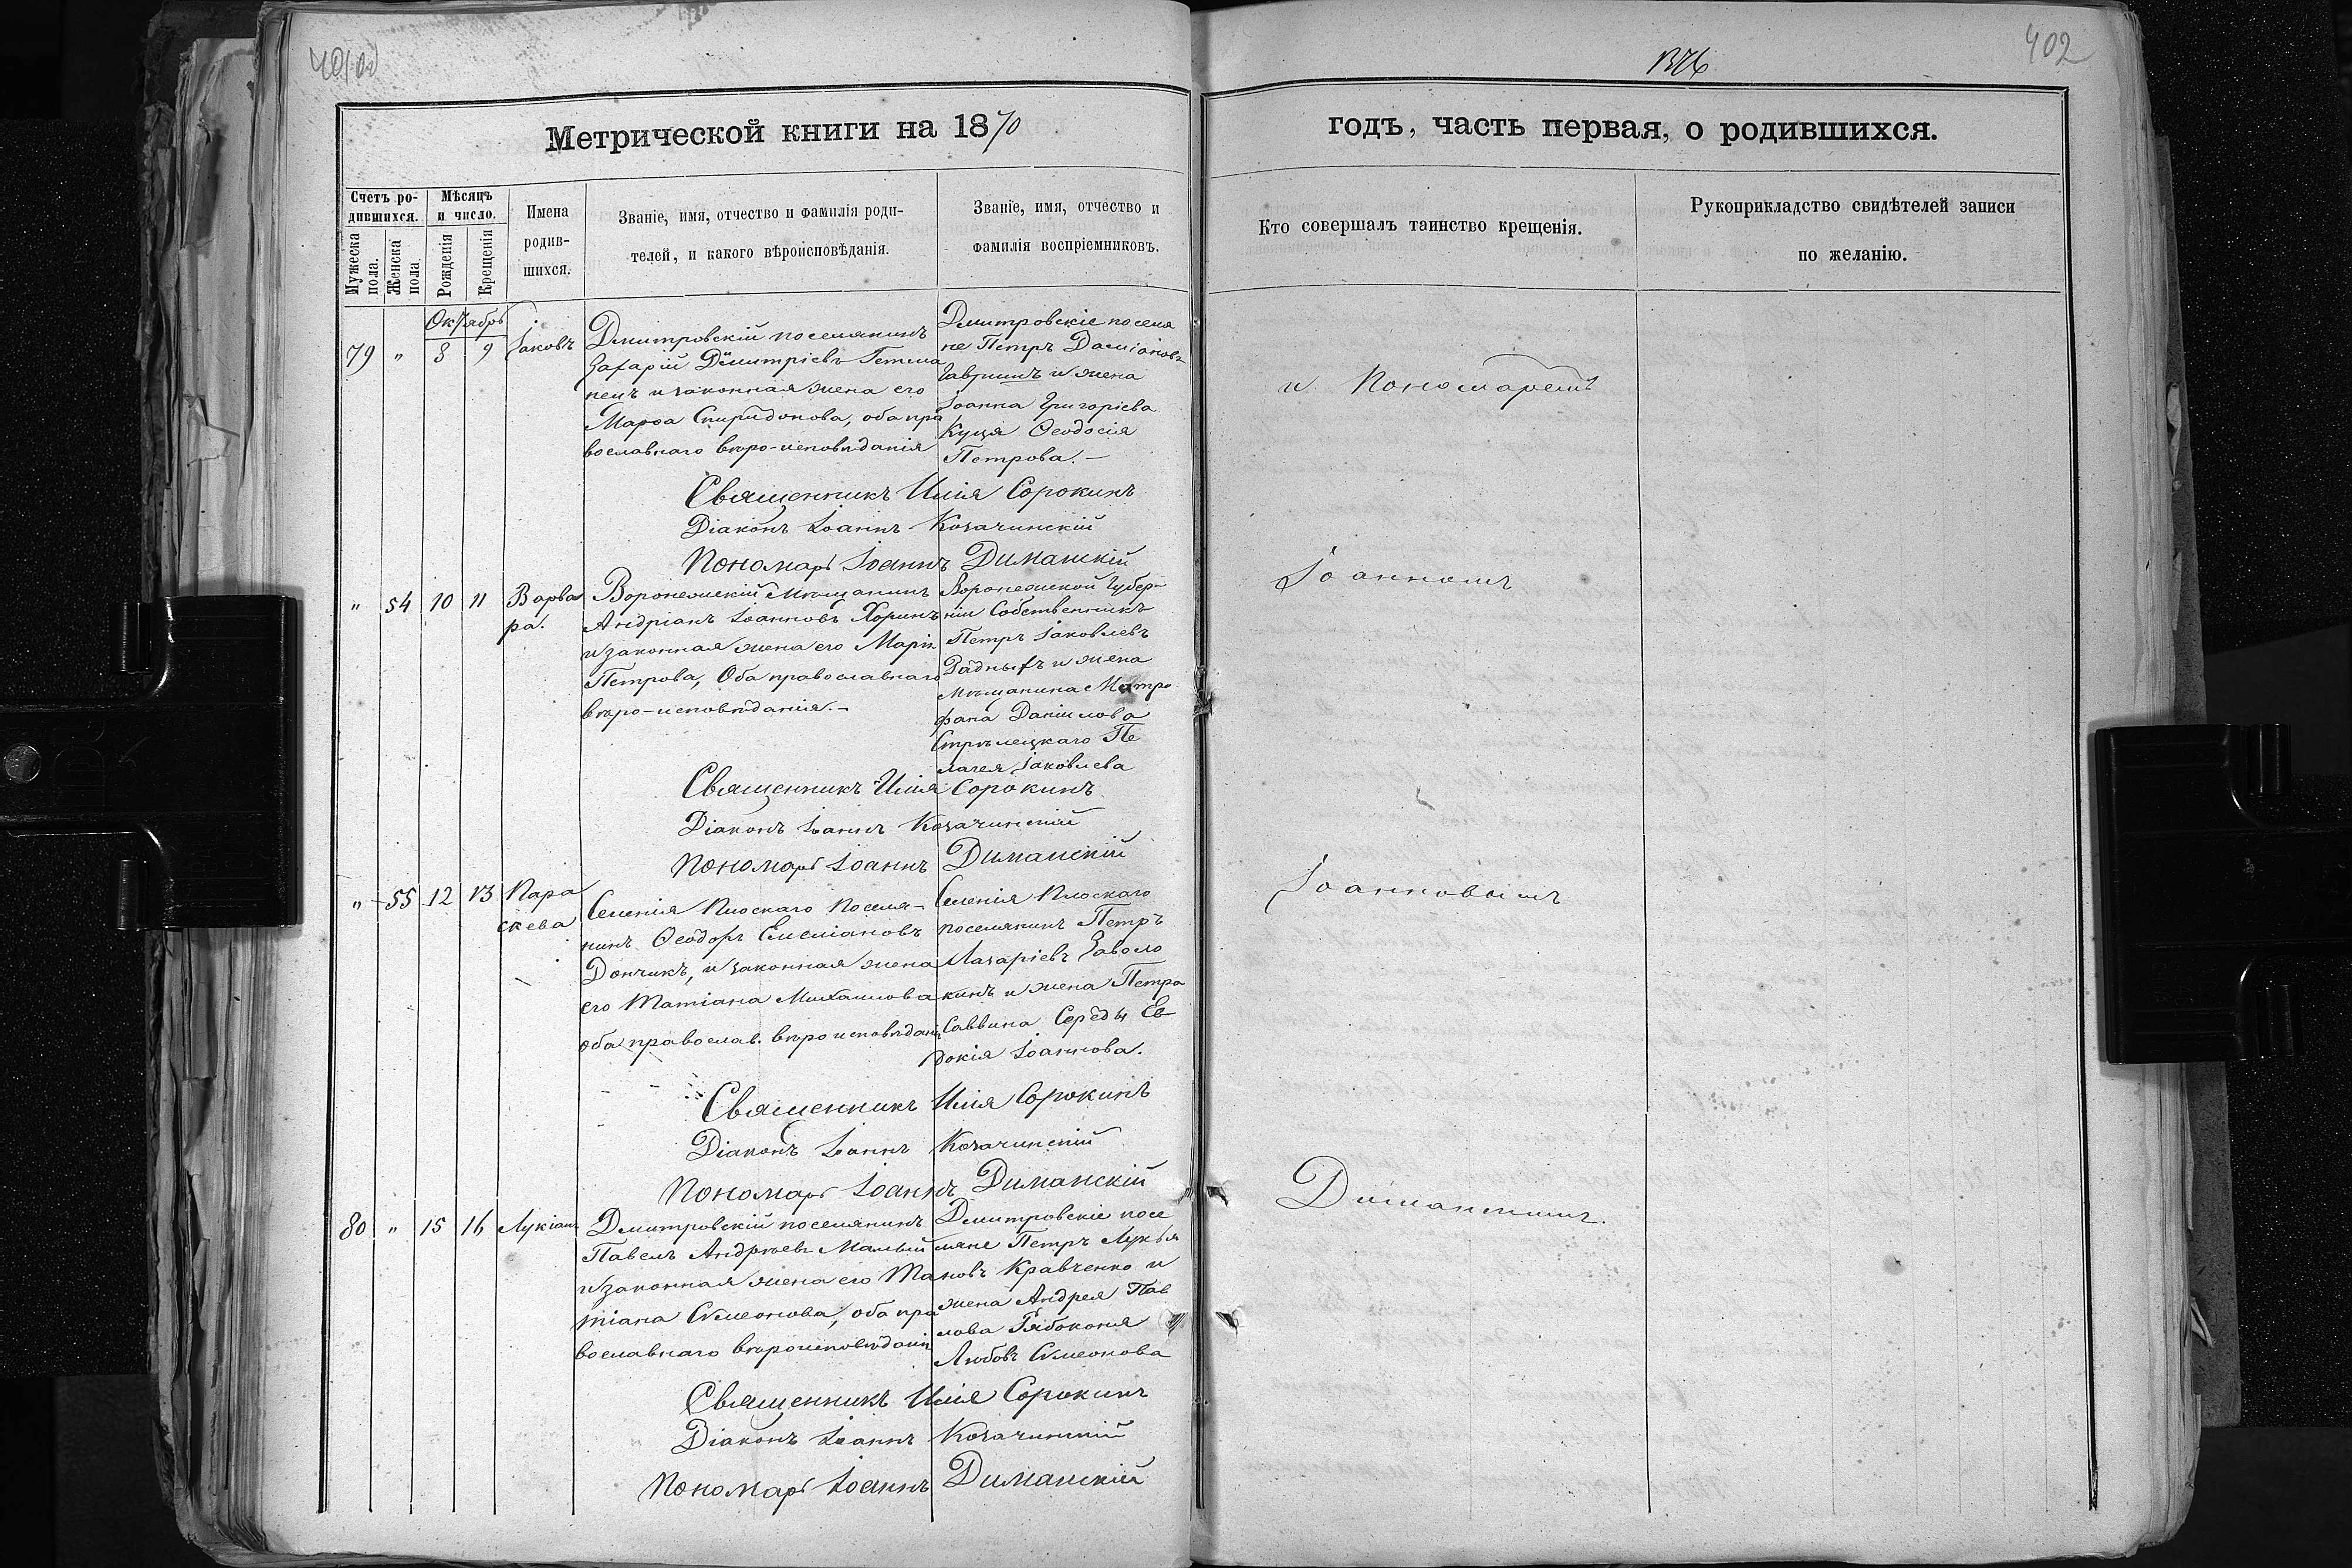 402
1376
Метрической книги на 1870
годъ, часть первая, о родившихся.
Счетъ ро-
дившихся.
Мужеска
пола.
Женска
пола.
Мѣсяцъ
и число.
Рожденія
Крещенія
Имена
родив-
шихся.
Званіе, имя, отчество и фамилія роди-
телей, и какого вѣроисповѣданія.
Званіе, имя, отчество и
фамилія воспріемниковъ.
Кто совершалъ таинство крещенія.
Рукоприкладство свидѣтелей записи
по желанію.
Октябрь
79 " 8 9 Іаковъ
Дмитровскій поселянинъ
Захарій Димитріевъ Гетма
нецъ и законная жена его
Марѳа Спиридонова, оба пра
вославнаго вѣро-исповѣданія
Дмитровскіе поселя
не Петръ Даміановъ
Гавришъ и жена
Іоанна Григоріева
Куця Ѳеодосія
Петрова.-
и Пономаремъ
Священникъ Илія Сорокинъ
Діаконъ Іоаннъ Козачинскій
Пономарь Іоаннъ Диманскій
" 54 10 11 Варва
ра.
Воронежскій Мѣщанинъ
Андріанъ Іоанновъ Хоринъ
и законная жена его Марія
Петрова, Оба православнаго
вѣро-исповѣданія.-
Воронежской Губер-
ніи Собственникъ
Петръ Іаковлевъ
Рядныхъ и жена
мѣщанина Митро
фана Даніилова
Стрѣлецкаго Пе
лагея Іаковлева
Іоанномъ
Священникъ Илія Сорокинъ
Діаконъ Іоаннъ Козачинскій
Пономарь Іоаннъ Диманскій
" 55 12 13 Пара
скева
Селенія Плоскаго Поселя-
нинъ Ѳеодоръ Емеліановъ
Дончикъ, и законная жена
его Татіана Михаилова
оба православ. вѣроисповѣданія
Селенія Плоскаго
поселянинъ Петръ
Лазаріевъ Заволо
кинъ и жена Петра
Саввина Середы Ев
докія Іоаннова.
Іоанновымъ
Священникъ Илія Сорокинъ
Діаконъ Іоаннъ Козачинскій
Пономарь Іоаннъ Диманскій
80 " 15 16 Лукіанъ
Дмитровскій поселянинъ
Павелъ Андрѣевъ Малый
и законная жена его Та
тіана Симеонова, оба пра
вославнаго вѣроисповѣданія
Дмитровскіе посе
ляне Петръ Лукья
новъ Кравченко и
жена Андрея Пав
лова Рябоконя
Любовь Симеонова
Диманскимъ.
Священникъ Илія Сорокинъ
Діаконъ Іоаннъ Козачинскій
Пономарь Іоаннъ Диманскій